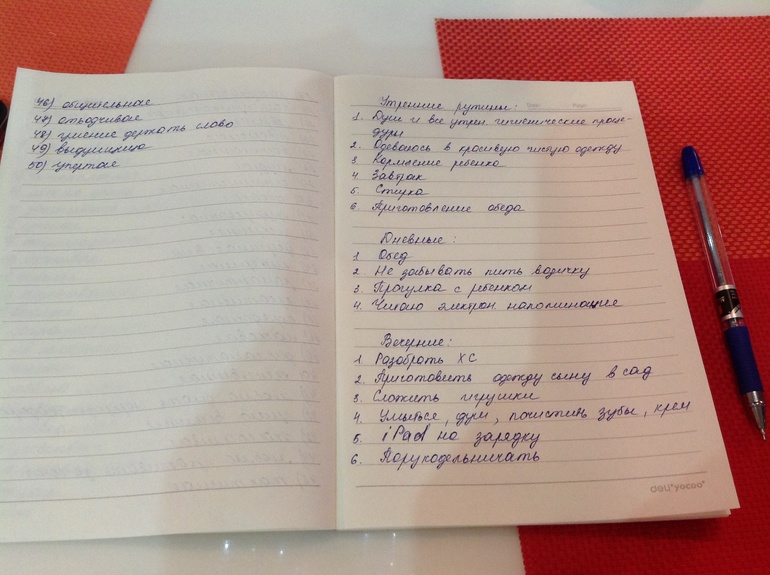 46) общительная
47) отходчивая
48) умение держать слово
49) выдумщица
50) упертая
Утренние рутины:
1. Душ и все утрен. гигиенические проце-
дуры
2. Одеваюсь в красивую чистую одежду
3. Кормление ребенка
4. Завтрак
5. Стирка
6. Приготовление обеда
Дневные:
1. Обед
2. Не забывать пить водичку
3. Прогулка с ребенком
4. Читаю электрон. напоминание
Вечерние:
1. Разобрать ХС
2. Приготовить одежду сыну в сад
3. Сложить игрушки
4. Умыться, душ, почистить зубы, крем
5. iPad на зарядку
6. Порукодельничать
deli yocoo